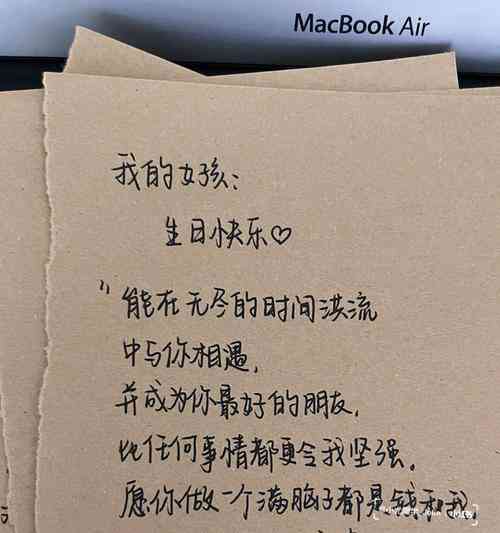 MacBook Air
我的女孩:
生日快乐♡
"能在无尽的时间洪流
中与你相遇,
并成为你最好的朋友,
比任何事情都更令我坚强。
愿你做一个满脑子都是钱和我